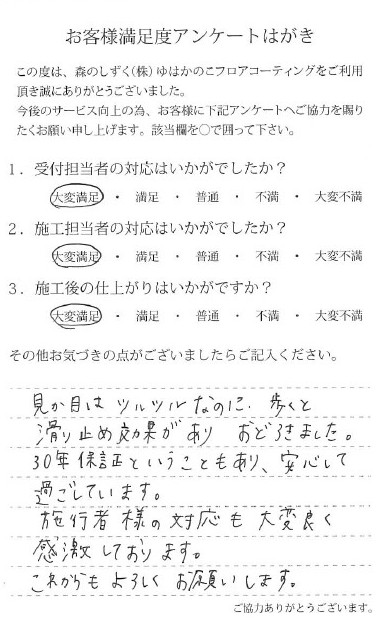 お客様満足度アンケートはがき
この度は、森のしずく(株)ゆはかのこフロアコーティングをご利用
頂き誠にありがとうございました。
今後のサービス向上の為、お客様に下記アンケートへご協力を賜り
たくお願い申し上げます。該当欄を○で囲って下さい。
1．受付担当者の対応はいかがでしたか？
大変満足 ・ 満足 ・ 普通 ・ 不満 ・ 大変不満
2．施工担当者の対応はいかがでしたか？
大変満足 ・ 満足 ・ 普通 ・ 不満 ・ 大変不満
3．施工後の仕上がりはいかがですか？
大変満足 ・ 満足 ・ 普通 ・ 不満 ・ 大変不満
その他お気づきの点がございましたらご記入ください。
見か目はツルツルなのに、歩くと
滑り止め効果があり おどろきました。
30年保証ということもあり、安心して
過ごしています。
施行者様の対応も大変良く
感激しております。
これからもよろしくお願いします。
ご協力ありがとうございます。